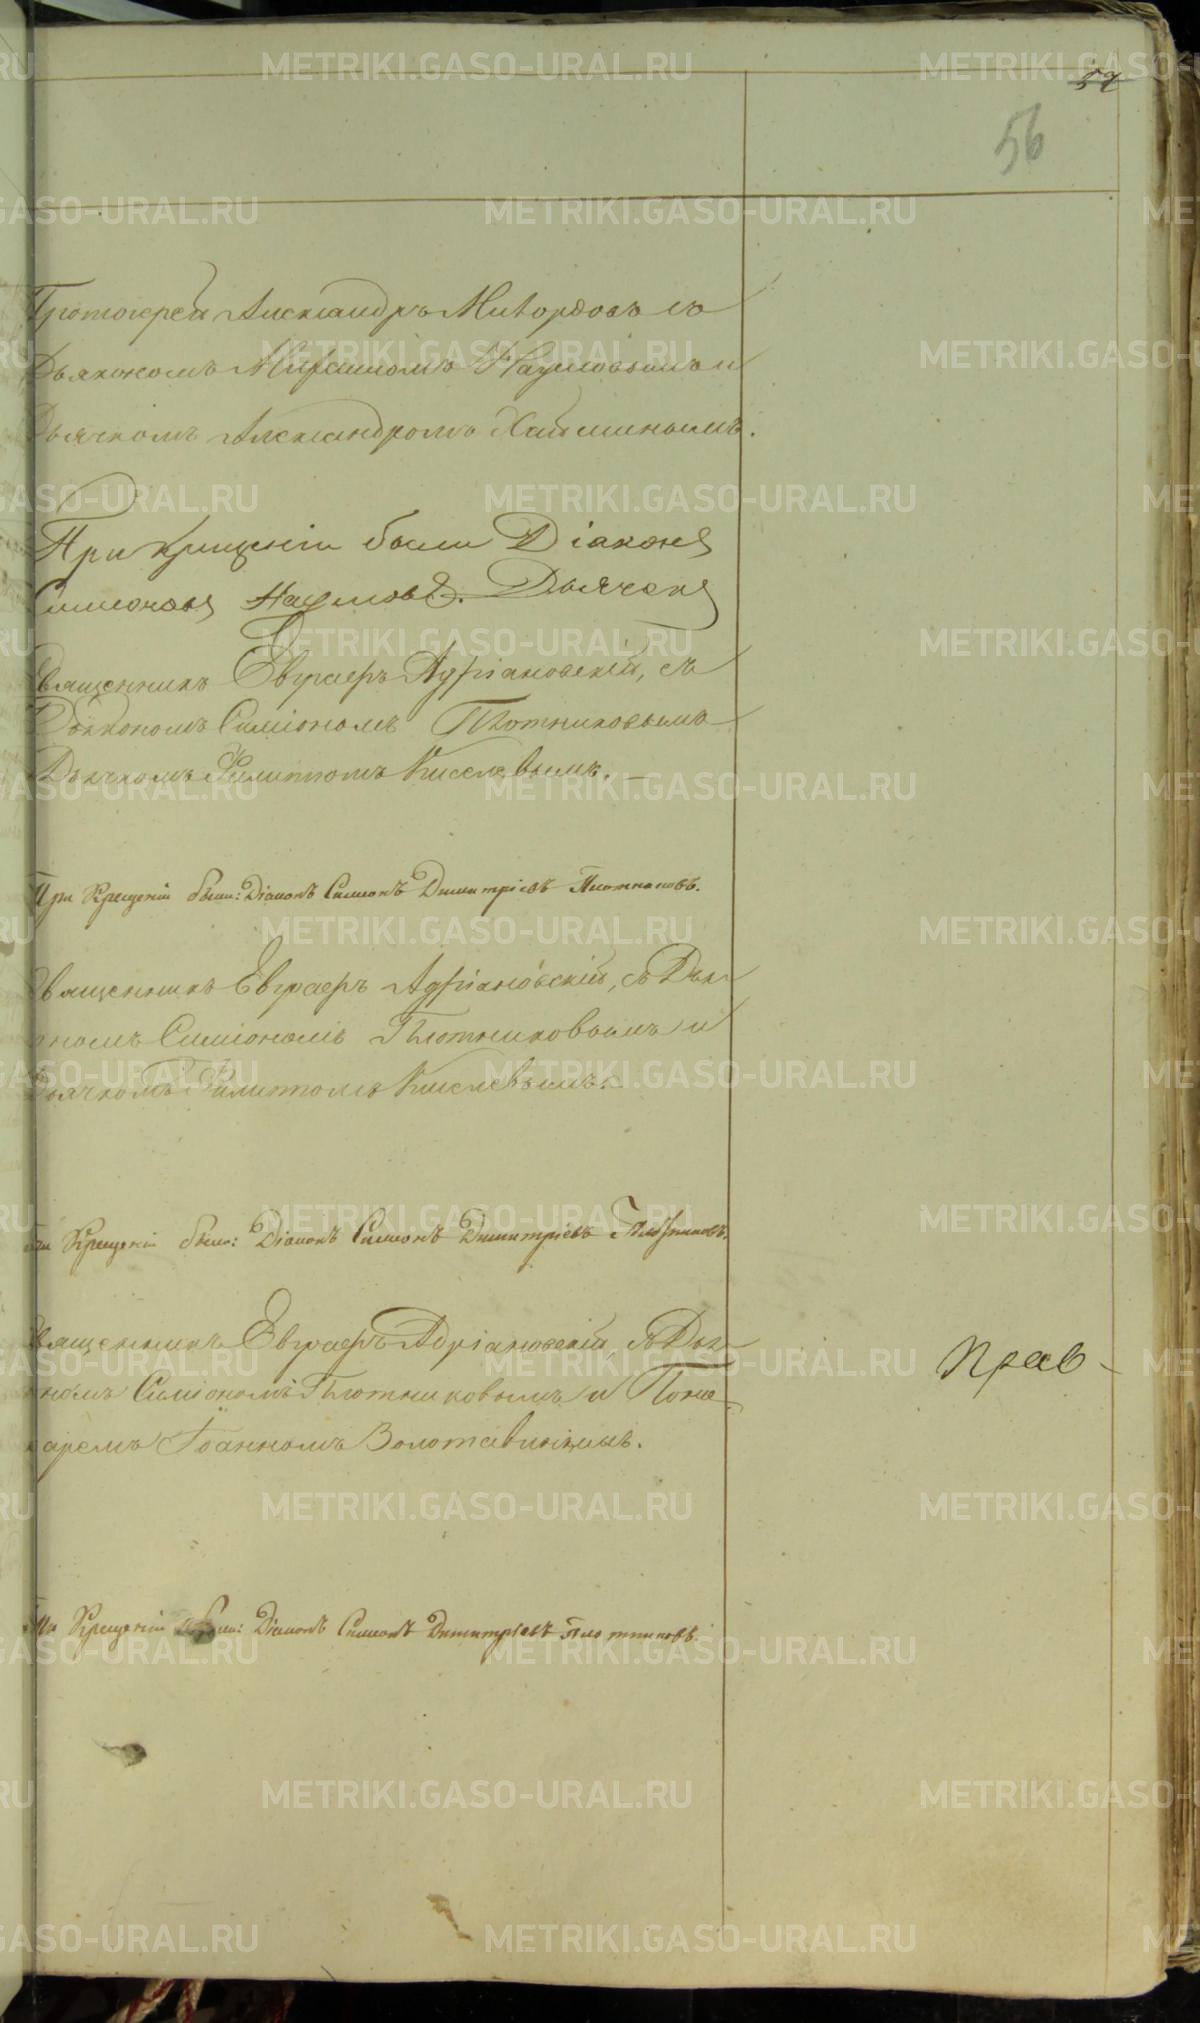 57
56
Протоіерей Александръ Мивордовъ съ
Дьякономъ Наумовымъ и
Дьячкомъ Александромъ
При крещеніи были Діаконъ
Симеонъ Наумовъ. Дьячекъ
Священникъ Евграфъ Адріановскій, съ
Дьякономъ Симіономъ Плотниковымъ
Дьячкомъ Филиппомъ Киселевымъ. —
При Крещеніи были: Діаконъ Симеонъ Димитріевъ Плотниковъ.
Священникъ Евграфъ Адріановскій, съ Дья-
кономъ Симіономъ Плотниковымъ и
Дьячкомъ Филиппомъ Киселевымъ. —
При Крещеніи были: Діаконъ Симеонъ Димитріевъ Плотниковъ.
Священникъ Евграфъ Адріановскій, съ Дья-
кономъ Симіономъ Плотниковымъ и Поно-
маремъ Іоанномъ Золотавинымъ.
Прав -
При Крещеніи были: Діаконъ Симеонъ Димитріевъ Плотниковъ.
METRIKI.GASO-URAL.RU